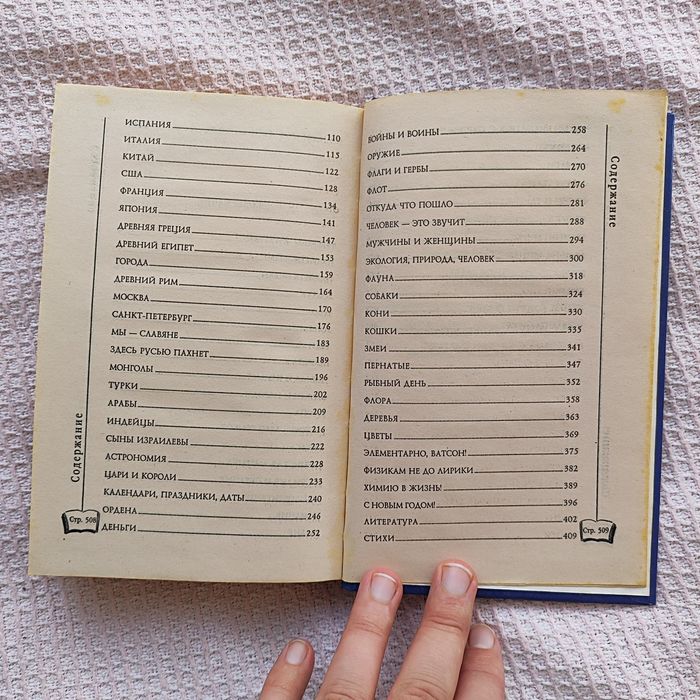 ИСПАНИЯ 110
ИТАЛИЯ 115
КИТАЙ 122
США 128
ФРАНЦИЯ 134
ЯПОНИЯ 141
ДРЕВНЯЯ ГРЕЦИЯ 147
ДРЕВНИЙ ЕГИПЕТ 153
ГОРОДА 159
ДРЕВНИЙ РИМ 164
МОСКВА 170
САНКТ-ПЕТЕРБУРГ 176
МЫ — СЛАВЯНЕ 183
ЗДЕСЬ РУСЬЮ ПАХНЕТ 189
МОНГОЛЫ 196
ТУРКИ 202
АРАБЫ 209
ИНДЕЙЦЫ 216
СЫНЫ ИЗРАИЛЕВЫ 222
АСТРОНОМИЯ 228
ЦАРИ И КОРОЛИ 233
КАЛЕНДАРИ, ПРАЗДНИКИ, ДАТЫ 240
ОРДЕНА 246
ДЕНЬГИ 252
Содержание
Стр. 508
ВОЙНЫ И ВОИНЫ 258
ОРУЖИЕ 264
ФЛАГИ И ГЕРБЫ 270
ФЛОТ 276
ОТКУДА ЧТО ПОШЛО 281
ЧЕЛОВЕК — ЭТО ЗВУЧИТ 288
МУЖЧИНЫ И ЖЕНЩИНЫ 294
ЭКОЛОГИЯ, ПРИРОДА, ЧЕЛОВЕК 300
ФАУНА 318
СОБАКИ 324
КОНИ 330
КОШКИ 335
ЗМЕИ 341
ПЕРНАТЫЕ 347
РЫБНЫЙ ДЕНЬ 352
ФЛОРА 358
ДЕРЕВЬЯ 363
ЦВЕТЫ 369
ЭЛЕМЕНТАРНО, ВАТСОН! 375
ФИЗИКАМ НЕ ДО ЛИРИКИ 382
ХИМИЮ В ЖИЗНЬ! 389
С НОВЫМ ГОДОМ! 396
ЛИТЕРАТУРА 402
СТИХИ 409
Содержание
Стр. 509